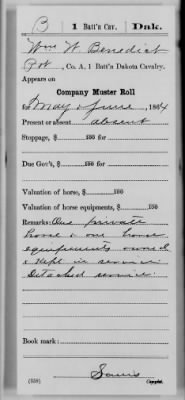 B | 1 Batt'n Cav. | Dak.
Wm W. Benedict
Pvt, Co. A, 1 Batt'n Dakota Cavalry.
Appears on
Company Muster Roll
for May & June, 1864
Present or absent absent
Stoppage, $ 100 for
Due Gov't, $ 100 for
Valuation of horse, $ 100
Valuation of horse equipments, $ 100
Remarks: One private
horse & one horse
equipments owned
& kept in service
Detached service.
Book mark:
(358)
Copyist.